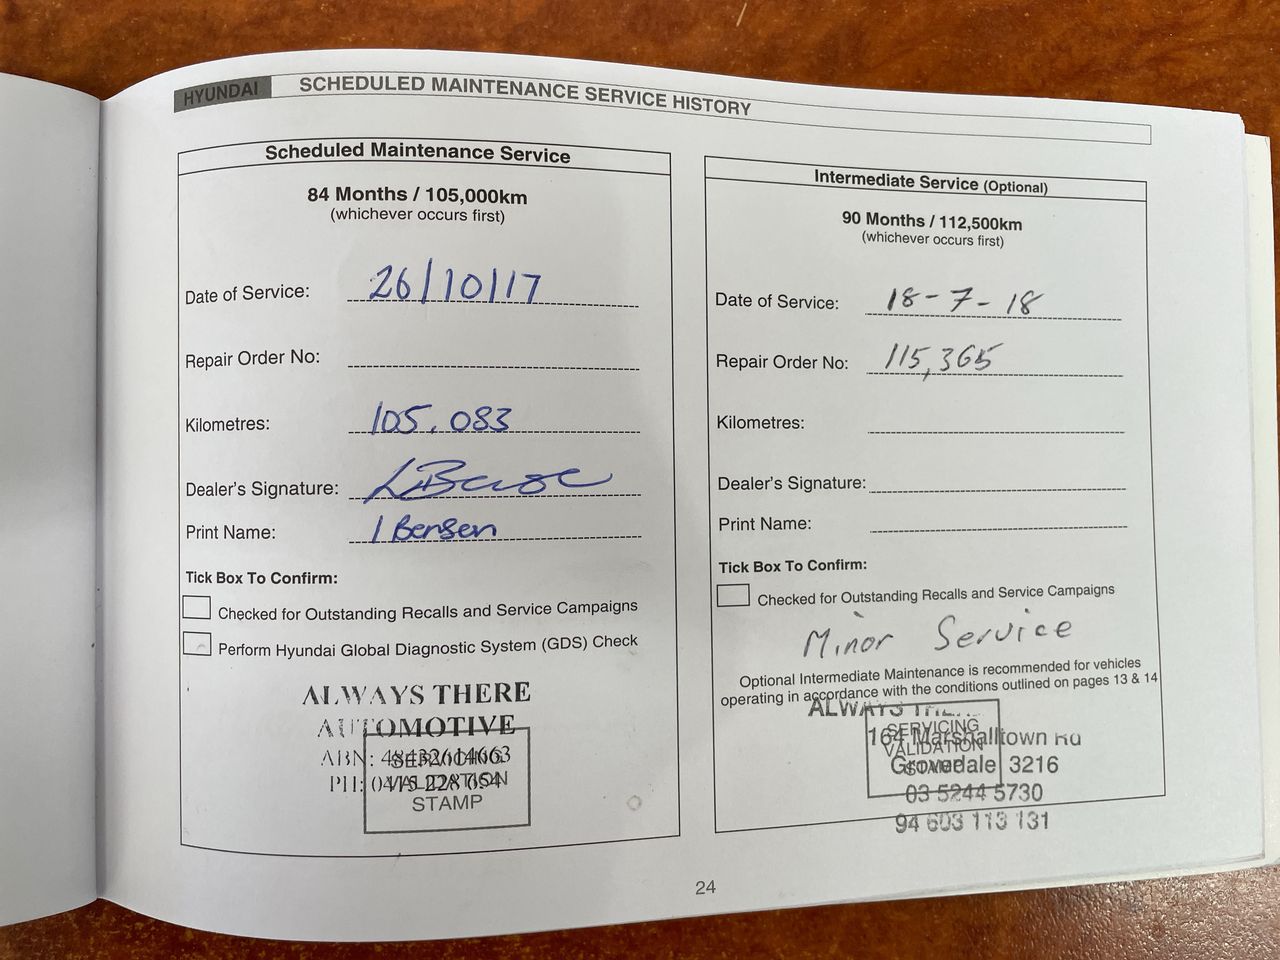 HYUNDAI SCHEDULED MAINTENANCE SERVICE HISTORY
Scheduled Maintenance Service
84 Months / 105,000km
(whichever occurs first)
Date of Service: 26/10/17
Repair Order No:
Kilometres: 105.083
Dealer's Signature:
Print Name: I Bensen
Tick Box To Confirm:
Checked for Outstanding Recalls and Service Campaigns
Perform Hyundai Global Diagnostic System (GDS) Check
ALWAYS THERE
AUTOMOTIVE
ABN: 48432614663
PH: 0415 228 654
SERVICING
VALIDATION
STAMP
Intermediate Service (Optional)
90 Months / 112,500km
(whichever occurs first)
Date of Service: 18-7-18
Repair Order No: 115,365
Kilometres:
Dealer's Signature:
Print Name:
Tick Box To Confirm:
Checked for Outstanding Recalls and Service Campaigns
Minor Service
Optional Intermediate Maintenance is recommended for vehicles
operating in accordance with the conditions outlined on pages 13 & 14
ALWAYS
SERVICING
VALIDATION
STAMP
164 Marshalltown Rd
Grovedale 3216
03 5244 5730
94 603 113 131
24